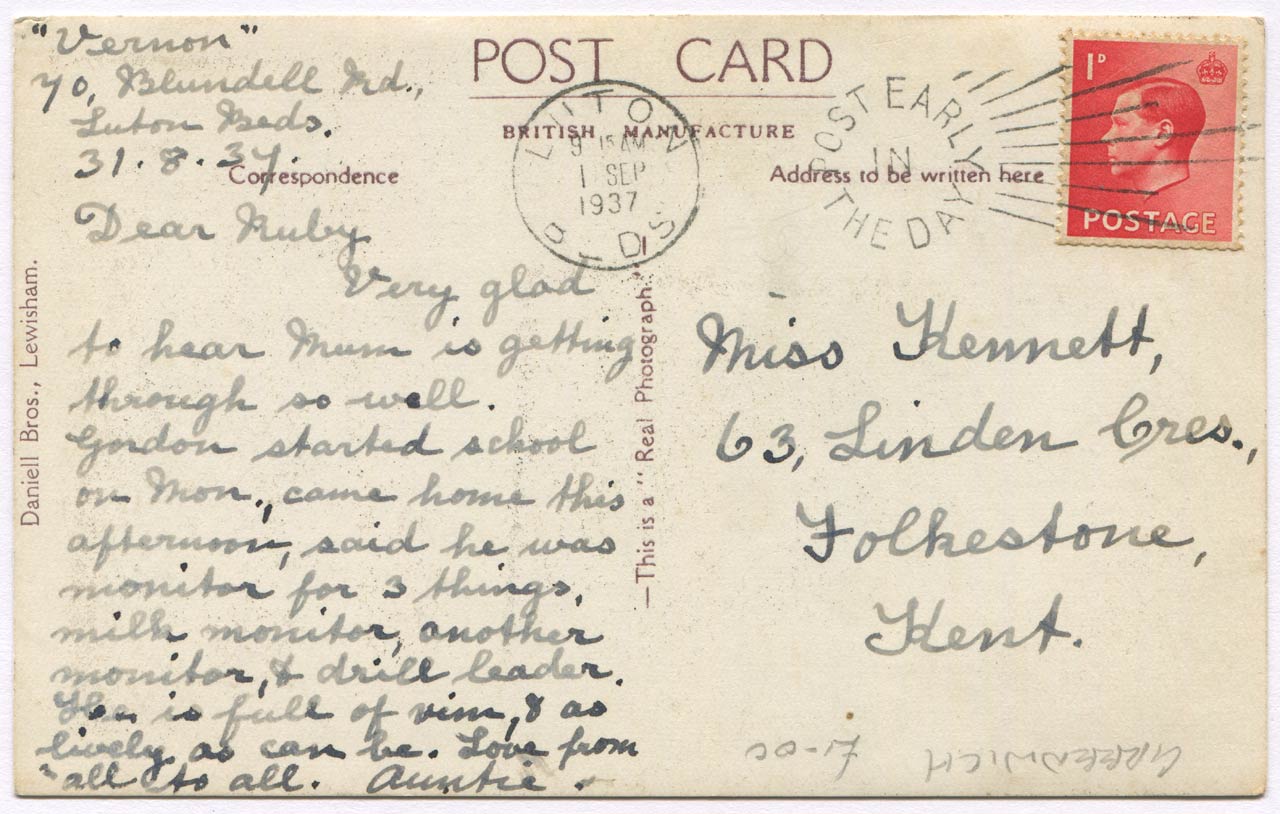 "Vernon"
70, Blundell Rd.,
Luton Beds.
31.8.37.
POST CARD
BRITISH MANUFACTURE
Correspondence
Address to be written here
LUTON
9 15 AM
1 SEP
1937
BEDS
POST EARLY
IN
THE DAY
1D
POSTAGE
Dear Ruby
Very glad
to hear Mum is getting
through so well.
Gordon started school
on Mon., came home this
afternoon, said he was
monitor for 3 things,
milk monitor, another
monitor, & drill leader.
is full of vim, & as
lively as can be. Love from
all to all. Auntie.
Miss Kennett,
63, Linden Cres.,
Folkestone,
Kent.
Daniell Bros., Lewisham.
—This is a "Real Photograph."
GREENWICH
£1-00